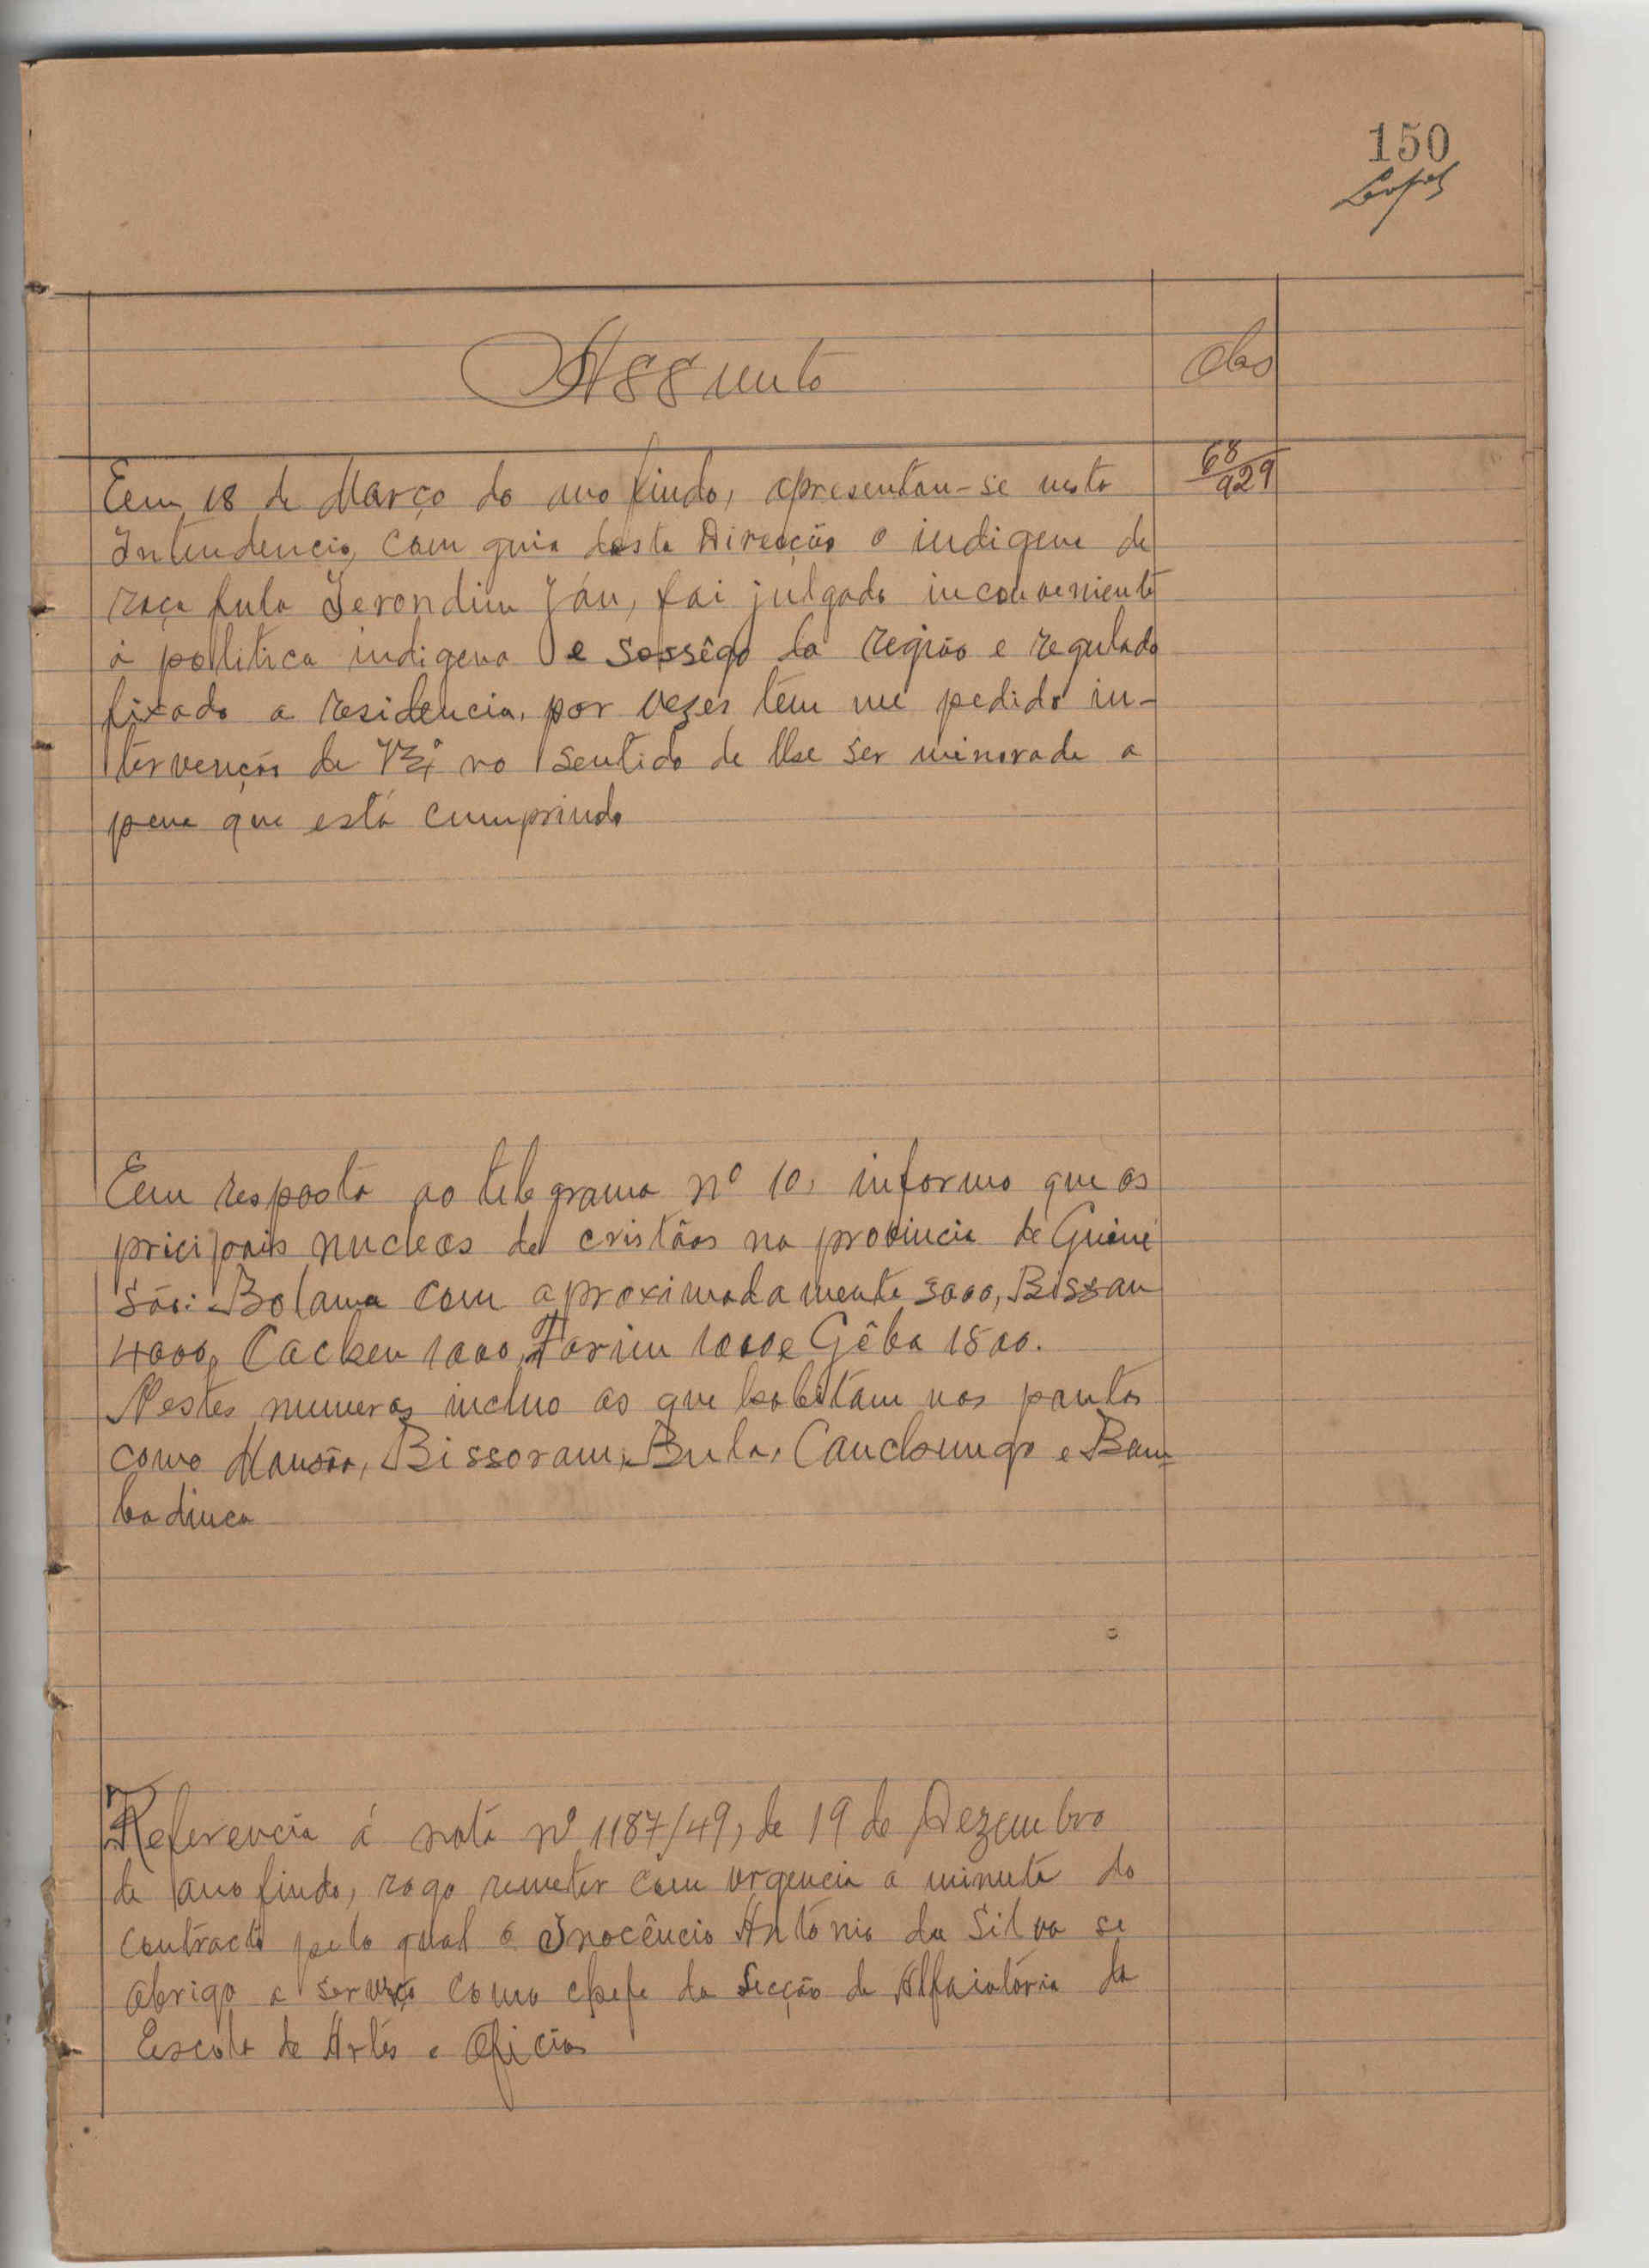 150
Lopes
Assunto
das
Em 18 de Março do ano findo, apresentou-se nesta
68/929
Intendencia, com guia desta Direcção o indigena de
raça fula Jerondim Jáu, foi julgado inconveniente
á politica indigena e sossêgo da região e regulado
fixado a residencia, por vezes têm me pedido in-
tervenção de no sentido de lhe ser minorada a
pena que está cumprindo
Em resposta ao telegrama nº 10, informo que os
pricipais nucleos de cristãos na provincia de Guiné
são: Bolama com aproximadamente 3000, Bissau
4000, Cacheu 1000, Farim 1000 e Gêba 1500.
Nestes numeros incluo os que habitam nos pontos
como Mansôa, Bissoram, Bula, Canchungo e Bam-
badinca
Referencia á nota nº 1187/49, de 19 de Dezembro
do ano findo, rogo remeter com urgencia a minuta do
contracto pelo qual o Inocêncio António da Silva se
obrigo a serviço como chefe da Secção de Alfaiatória da
Escola de Artes e Oficios